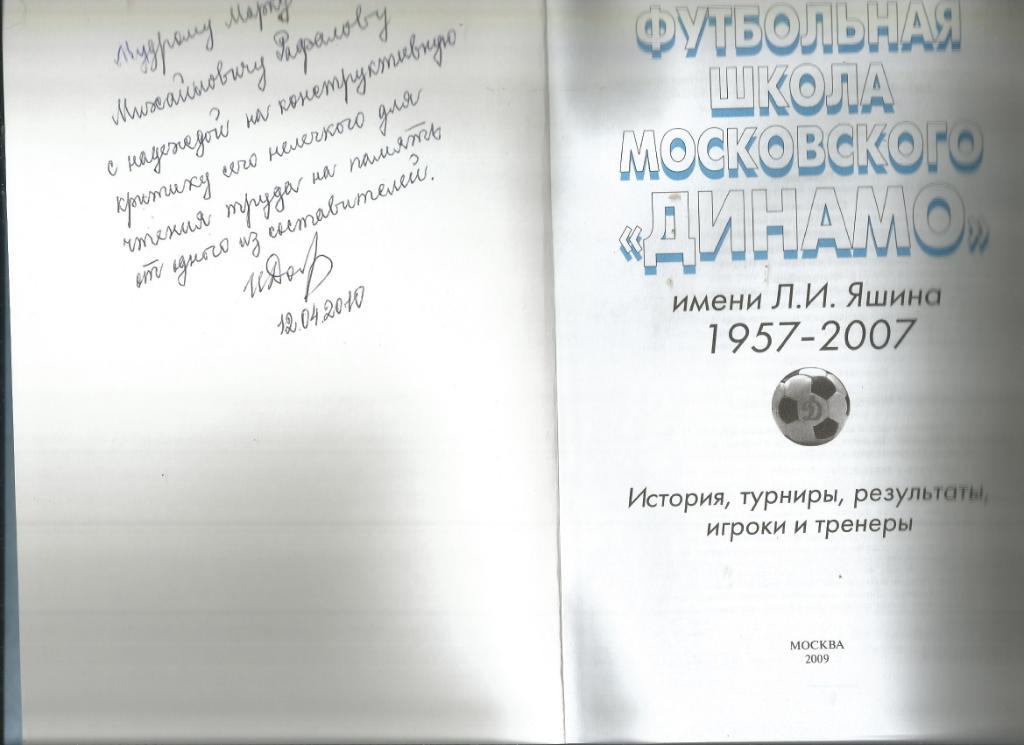 Мудрому Марку
Михайловичу Рафалову
с надеждой на конструктивную
критику сего нелегкого для
чтения труда на память
от одного из составителей.
12.04.2010
ФУТБОЛЬНАЯ
ШКОЛА
МОСКОВСКОГО
«ДИНАМО»
имени Л.И. Яшина
1957-2007
Д
История, турниры, результаты,
игроки и тренеры
МОСКВА
2009